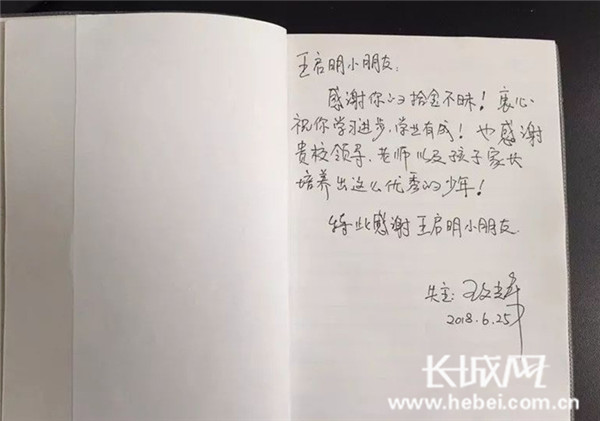 王启明小朋友：
感谢你的拾金不昧！衷心
祝你学习进步，学业有成！也感谢
贵校领导、老师以及孩子家长
培养出这么优秀的少年！
特此感谢王启明小朋友
失主：
2018.6.25
长城网
www.hebei.com.cn